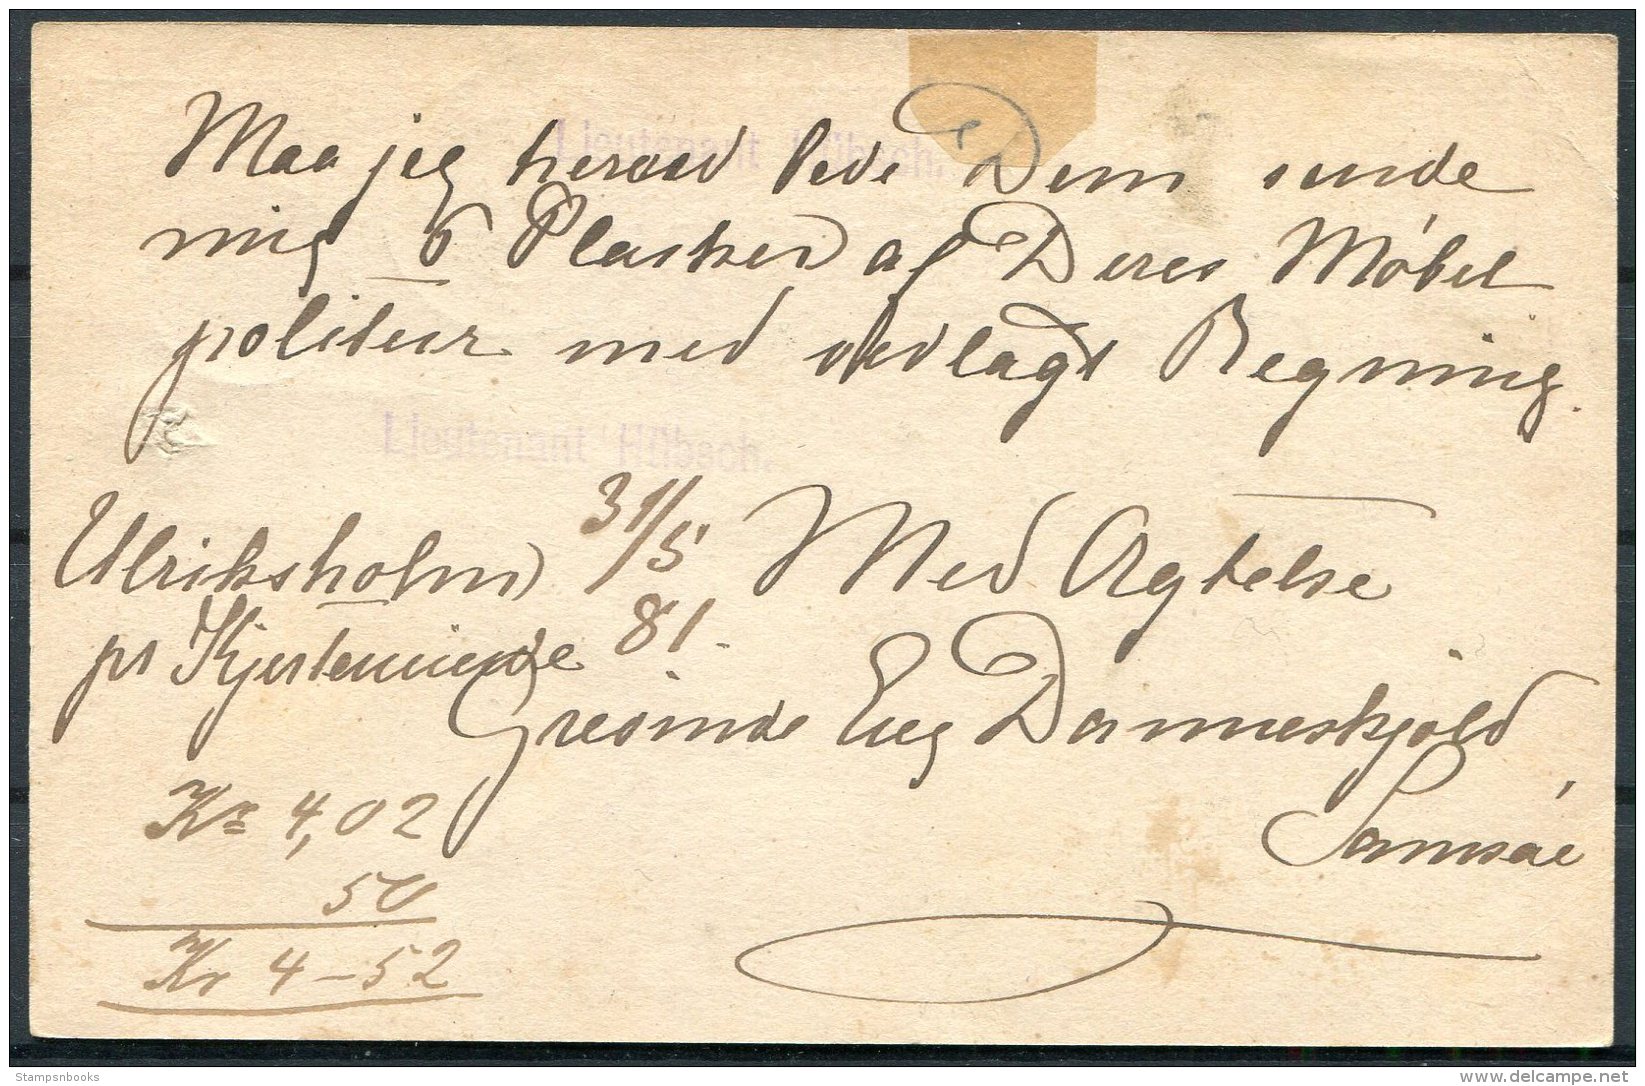 Maa jeg herved bede Dem sende
mig 6 Flasker af Deres Möbel
politeur med vedlagt Regning.
Lieutenant Hübsch.
Lieutenant Hübsch.
Ulriksholm 31/5 Med Agtelse
pr Kjerteminde 81.
Grevinde Eug Danneskjold
Samsöe
Kr 4,02
50
Kr 4-52
Stampsnbooks
delcampe.net